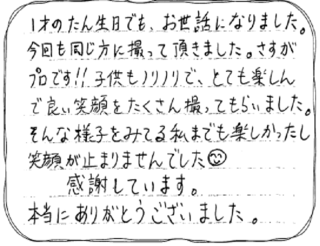 1才のたん生日でも、お世話になりました。
今回も同じ方に撮って頂きました。さすが
プロです!!子供もノリノリで、とても楽しん
で良い笑顔をたくさん撮ってもらいました。
そんな様子をみてる私までも楽しかったし
笑顔が止まりませんでした☺
感謝しています。
本当にありがとうございました。